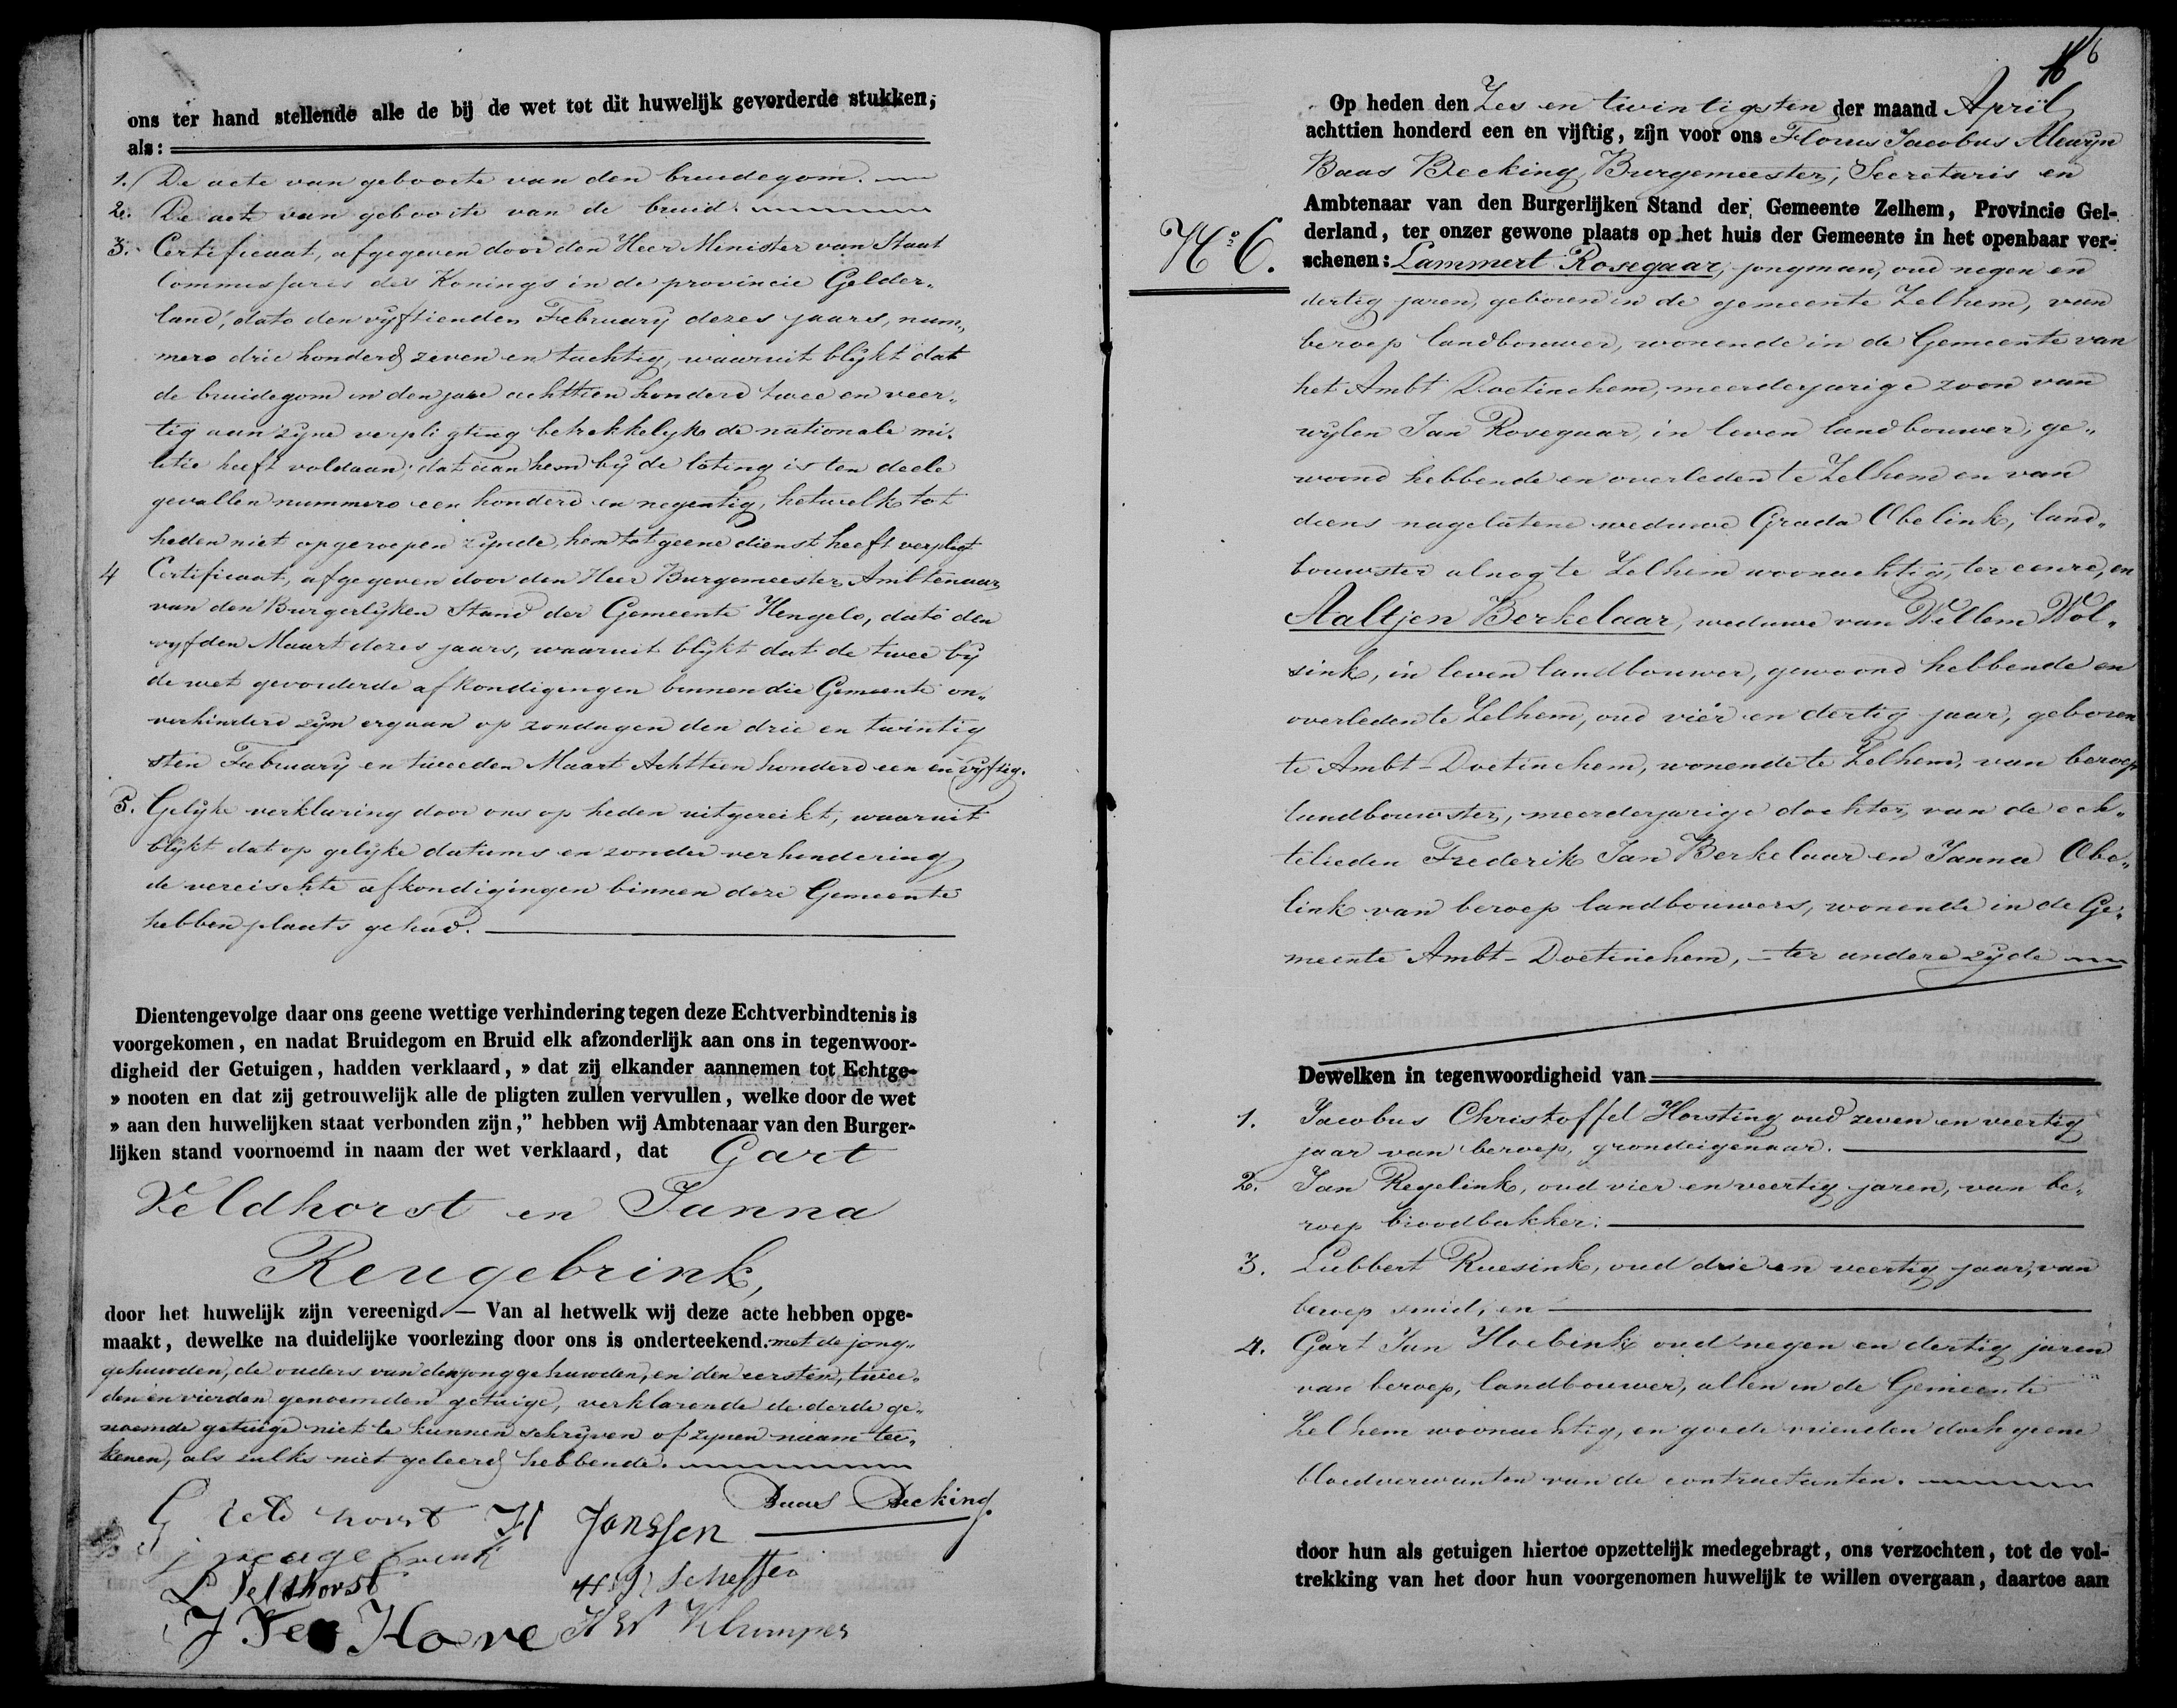 ons ter hand stellende alle de bij de wet tot dit huwelijk gevorderde stukken,
als:
1. De acte van geboorte van den bruidegom.
2. De acte van geboorte van de bruid.
3. Certificaat, afgegeven door den Heer Minister van Staat
Commissaris des Konings in de provincie Gelder„
land, dato den vyftienden February dezes jaars, num„
mero drie honderd zeven en tachtig, waaruit blykt dat
de bruidegom in den jare achttien honderd twee en veer„
tig aan zyne verpligting betrekkelyk de nationale mi„
litie heeft voldaan; dat aan hem by de loting is ten deele
gevallen nummero een honderd en negentig, hetwelk tot
heden niet opgeroepen zynde, hem tot geene dienst heeft verpligt
4 Certificaat, afgegeven door den Heer Burgemeester Ambtenaar
van den Burgerlyken Stand der Gemeente Hengelo, dato den
vyfden Maart dezes jaars, waaruit blykt dat de twee by
de wet gevorderde afkondigingen binnen die Gemeente on„
verhinderd zyn ergaan op zondagen den drie en twintig
sten February en tweeden Maart Achttien honderd een en vyftig.
5. Gelyke verklaring door ons op heden uitgereikt, waaruit
blykt dat op gelyke datums en zonder verhindering
de vereischte afkondigingen binnen deze Gemeente
hebben plaats gehad.
Dientengevolge daar ons geene wettige verhindering tegen deze Echtverbindtenis is
voorgekomen, en nadat Bruidegom en Bruid elk afzonderlijk aan ons in tegenwoor-
digheid der Getuigen, hadden verklaard, » dat zij elkander aannemen tot Echtge-
» nooten en dat zij getrouwelijk alle de pligten zullen vervullen, welke door de wet
» aan den huwelijken staat verbonden zijn,” hebben wij Ambtenaar van den Burger-
lijken stand voornoemd in naam der wet verklaard, dat Gart
Veldhorst en Janna
Reugebrink,
door het huwelijk zijn vereenigd. — Van al hetwelk wij deze acte hebben opge-
maakt, dewelke na duidelijke voorlezing door ons is onderteekend. met de jong„
gehuwden, de ouders van den jonggehuwden, en den eersten, twee„
den en vierden genoemden getuige, verklarende de derde ge„
noemde getuige niet te kunnen schryven of zynen naam tee„
kenen, als zulks niet geleerd hebbende.
Baas Becking
G Veldhorst H Janssen
J reugebrink
L Veldhorst Scheffer
J Ten Have Klumper
6
Op heden den Zes en twintigsten der maand April
achttien honderd een en vijftig, zijn voor ons Florus Jacobus Alewyn
Baas Becking, Burgemeester, Secretaris en
Ambtenaar van den Burgerlijken Stand der Gemeente Zelhem, Provincie Gel-
derland, ter onzer gewone plaats op het huis der Gemeente in het openbaar ver-
No 6.
schenen: Lammert Rosegaar, jongman, oud negen en
dertig jaren, geboren in de gemeente Zelhem, van
beroep landbouwer, wonende in de Gemeente van
het Ambt Doetinchem, meerderjarige zoon van
wylen Jan Rosegaar, in leven landbouwer, ge„
woond hebbende en overleden te Zelhem en van
diens nagelatene weduwe Grada Obelink, land„
bouwster alnog te Zelhem woonachtig, ter eenre, en
Aaltjen Berkelaar, weduwe van Willem Wol„
sink, in leven landbouwer, gewoond hebbende en
overleden te Zelhem, oud vier en dertig jaar, geboren
te Ambt-Doetinchem, wonende te Zelhem, van beroep
landbouwster, meerderjarige dochter van de ech„
telieden Frederik Jan Berkelaar en Janna Obe„
link van beroep landbouwers, wonende in de Ge„
meente Ambt-Doetinchem, - ter andere zyde
Dewelken in tegenwoordigheid van
1. Jacobus Christoffel Horsting oud zeven en veertig
jaar van beroep, grondeigenaar.
2. Jan Regelink, oud vier en veertig jaren, van be„
roep broodbakker.
3. Lubbert Ruesink, oud drie en veertig jaar, van
beroep smid, en
4. Gart Jan Hoebink oud negen en dertig jaren
van beroep, landbouwer, allen in de Gemeente
Zelhem woonachtig, en goede vrienden doch geene
bloedverwanten van de contractanten.
door hun als getuigen hiertoe opzettelijk medegebragt, ons verzochten, tot de vol-
trekking van het door hun voorgenomen huwelijk te willen overgaan, daartoe aan